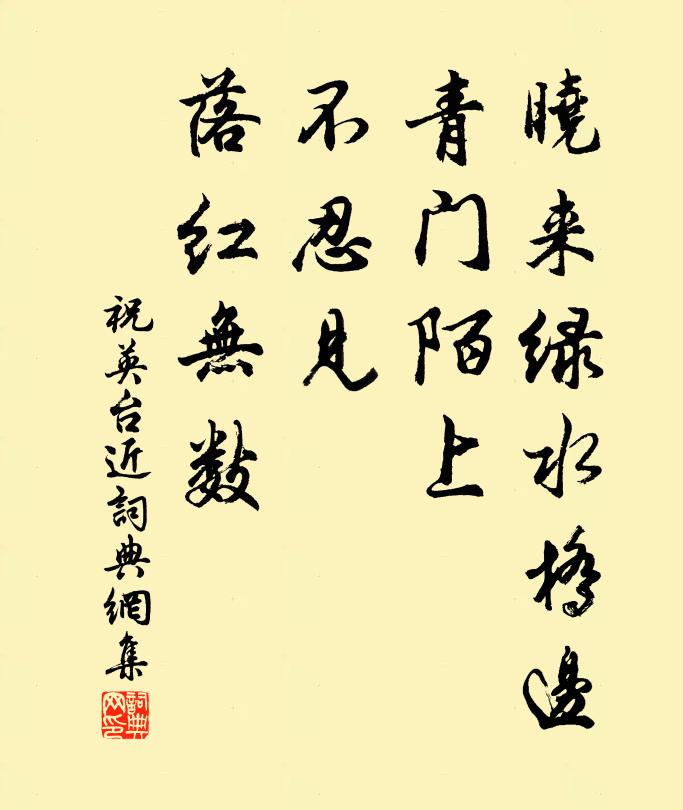 曉来緑水橋邊
青门陌上
不忍見
落红無数
祝英台近詞典網集
詞典网印